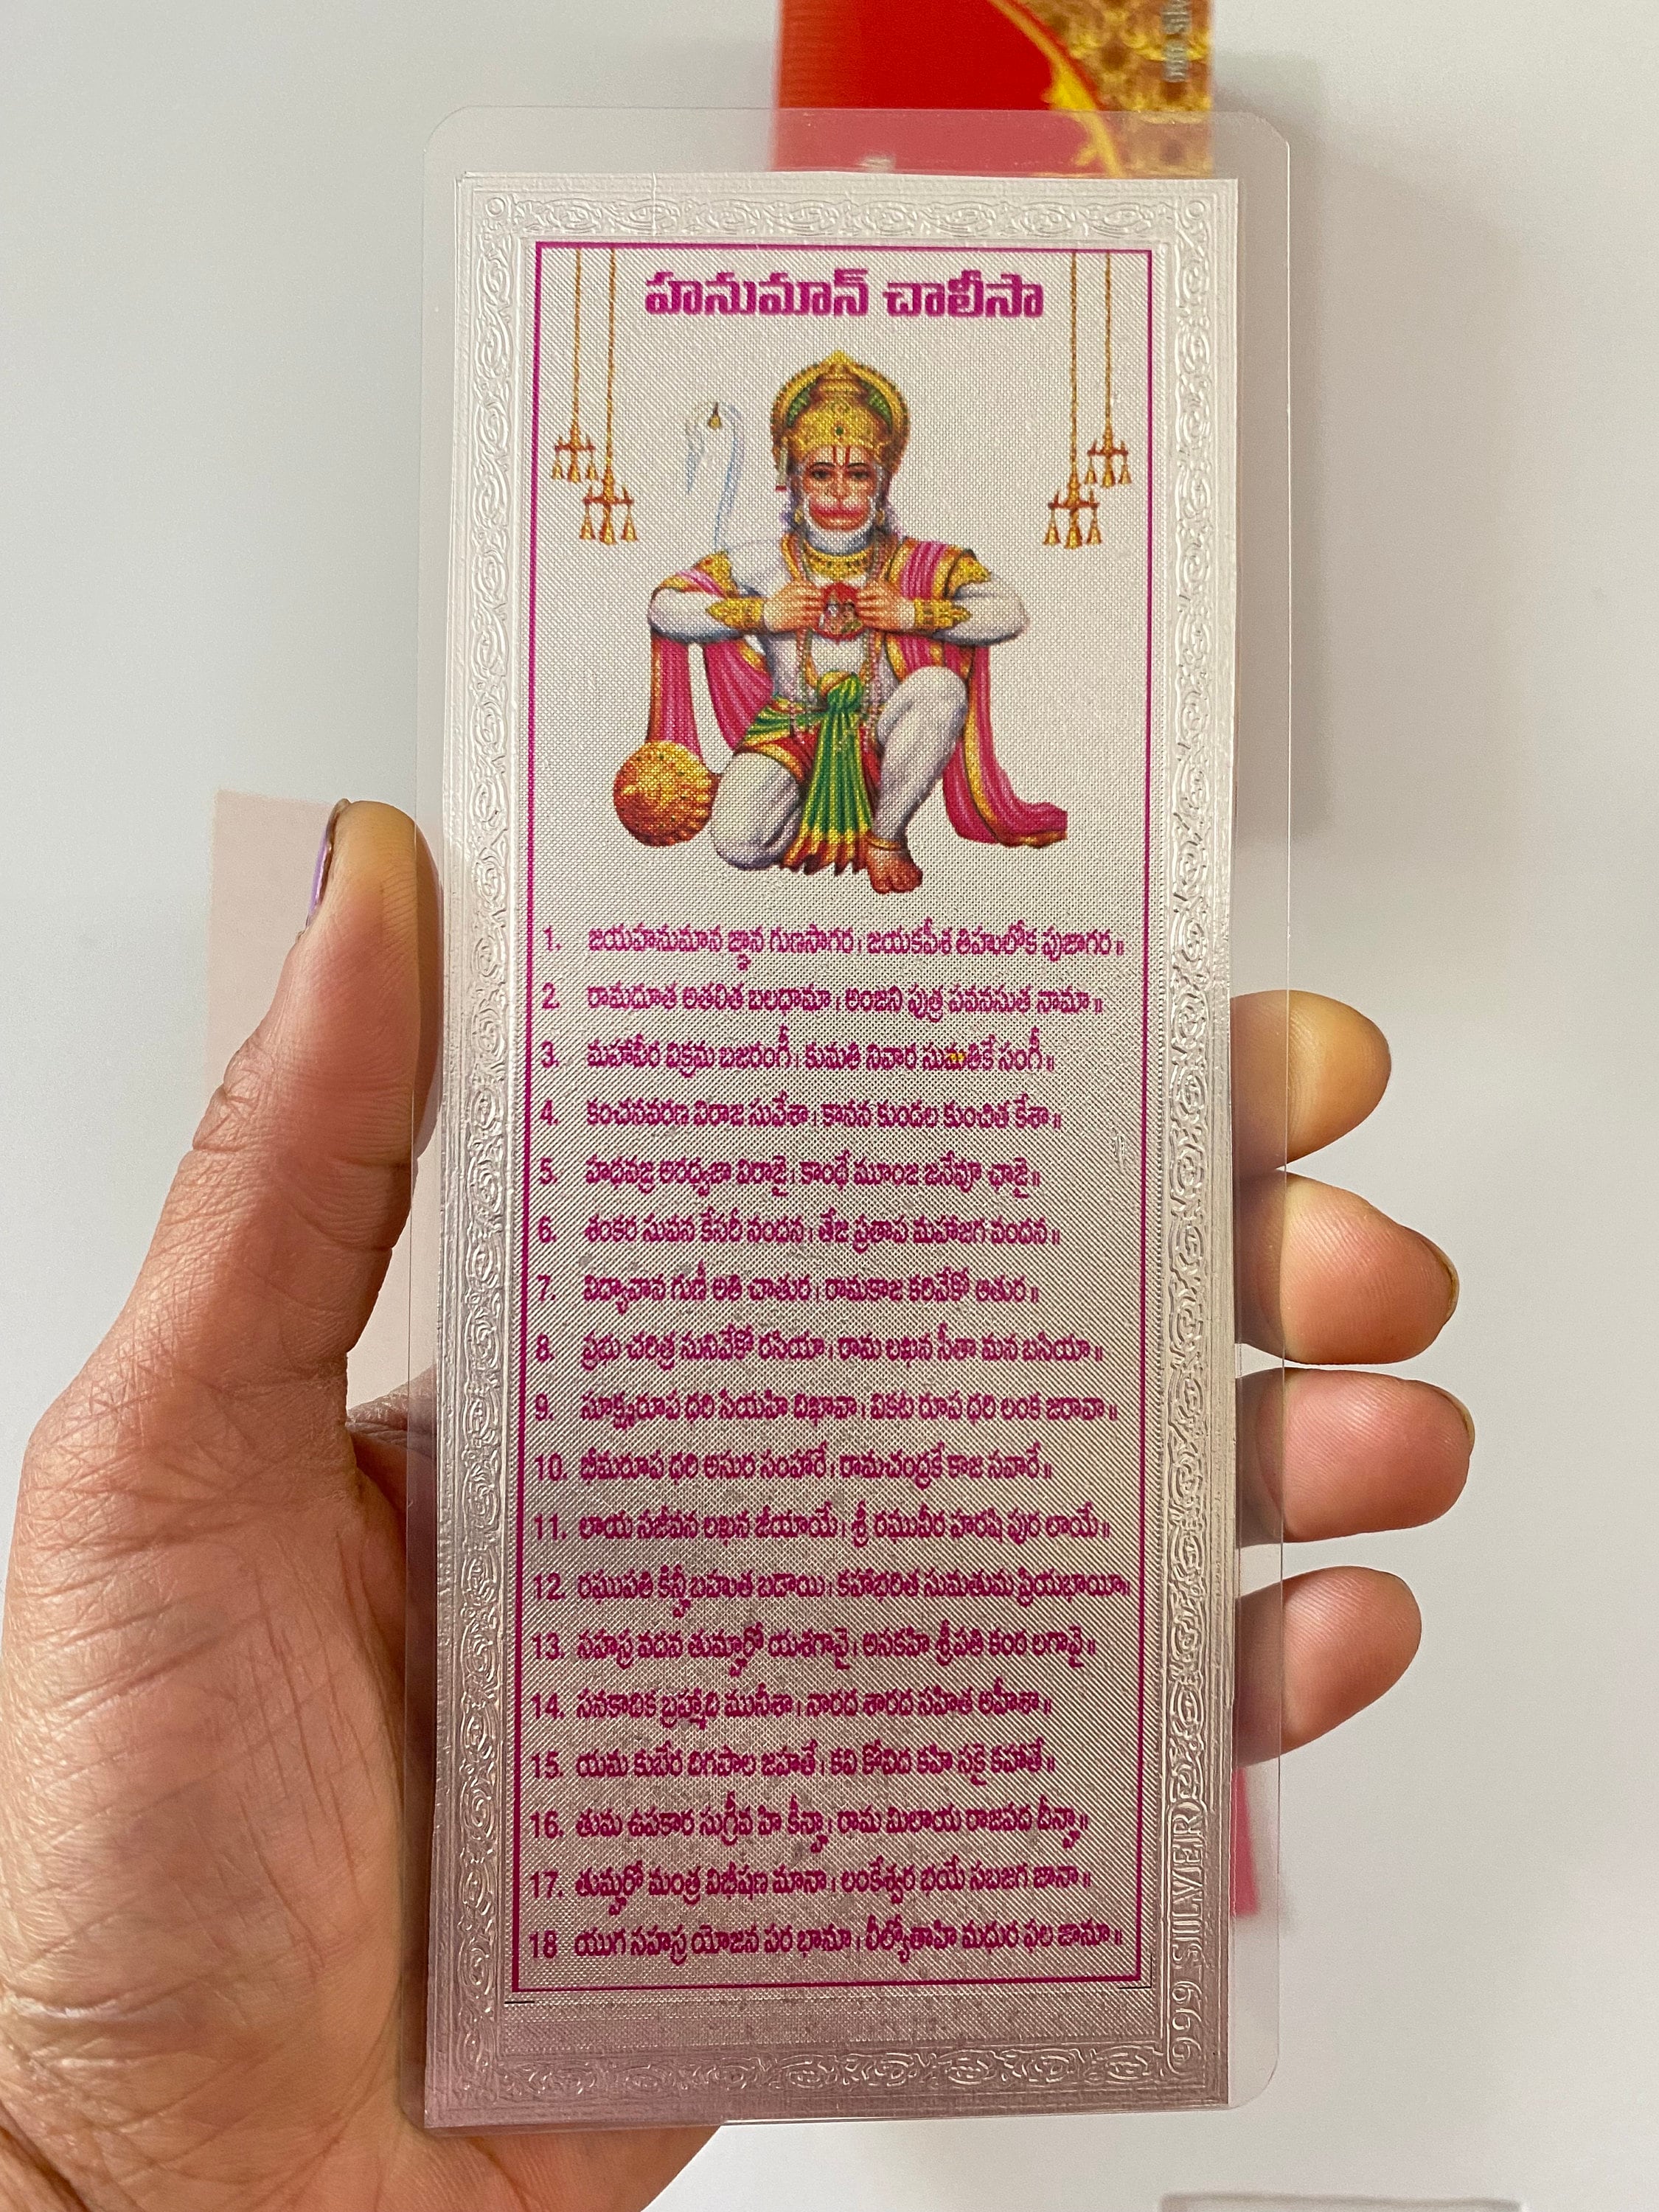 హనుమాన్ చాలీసా
1. జయహనుమాన జ్ఞాన గుణసాగర। జయకపీశ తిహులోక పుజాగర॥
2. రామదూత అతలిత బలధామా। అంజని పుత్ర పవనసుత నామా॥
3. మహావీర విక్రమ బజరంగీ। కుమతి నివార సుమతికే సంగీ॥
4. కంచనవరణ విరాజ సువేశా। కానన కుండల కుంచిత కేశా॥
5. హథవజ్ర అరధ్వజా విరాజై। కాంధే మూంజ జనేవూ ఛాజై॥
6. శంకర సువన కేసరీ నందన। తేజ ప్రతాప మహాజగ వందన॥
7. విద్యావాన గుణీ అతి చాతుర। రామకాజ కరివేకో ఆతుర॥
8. ప్రభు చరిత్ర సునివేకో రసియా। రామ లఖన సీతా మన బసియా॥
9. సూక్ష్మరూప ధరి సియహి దిఖావా। వికట రూప ధరి లంక జరావా॥
10. భీమరూప ధరి అసుర సంహారే। రామచంద్రకే కాజ సవారే॥
11. లాయ సజీవన లఖన జీయాయే। శ్రీ రఘువీర హరషి పుర లాయే॥
12. రఘుపతి కీన్హీ బహుత బడాయి। కహాభరిత సుమతుమ ప్రియభాయీ॥
13. సహస్ర వదన తుమ్హారో యశగావై। అసకహి శ్రీపతి కంఠ లగావై॥
14. సనకాదిక బ్రహ్మాది మునీశా। నారద శారద సహిత అహీశా॥
15. యమ కుబేర దిగపాల జహతే। కవి కోవిద కహి సకై కహాతే॥
16. తుమ ఉపకార సుగ్రీవ హి కీన్హా। రామ మిలాయ రాజపద దీన్హా॥
17. తుమ్హరో మంత్ర విభీషణ మానా। లంకేశ్వర భయే సబజగ జానా॥
18 యుగ సహస్ర యోజన పర భానూ। లీల్యోతాహి మధుర ఫల జానూ॥
999 SILVER